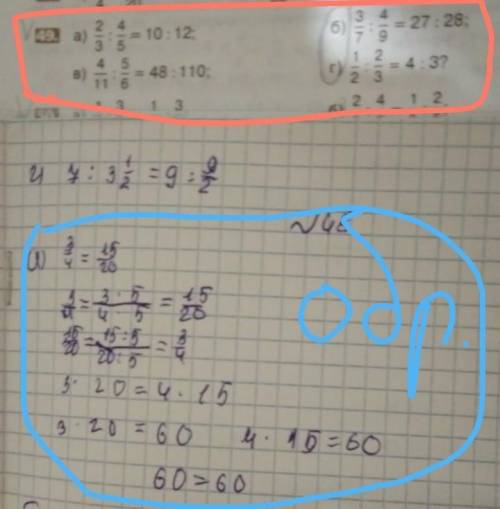 49. а) 2/3 : 4/5 = 10 : 12; б) 3/7 : 4/9 = 27 : 28;
в) 4/11 : 5/6 = 48 : 110; г) 1/2 : 2/3 = 4 : 3?
7 : 3 1/2 = 9 : 9/2
3/4 = 15/20
3/4 = 3 · 5 / 4 · 5 = 15/20
15/20 = 15 : 5 / 20 : 5 = 3/4
3 · 20 = 4 · 15
3 · 20 = 60 4 · 15 = 60
60 = 60
Обр.